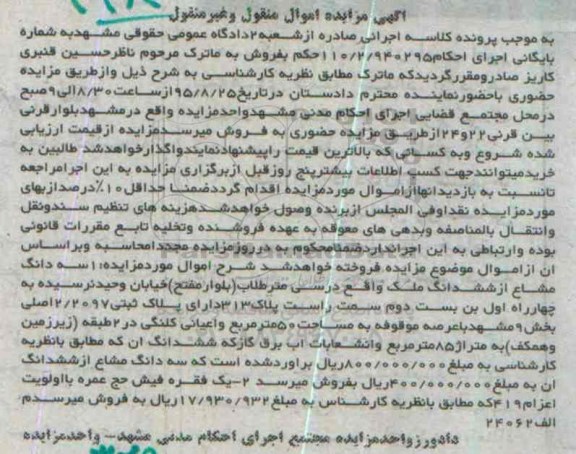 آگهی مزایده اموال منقول وغیرمنقول
به موجب پرونده کلاسه اجرائی صادره ازشعبه۲دادگاه عمومی حقوقی مشهدبه شماره
بایگانی اجرای احکام۱۱۰/۲/۹۴۰۲۹۵حکم بفروش به ماترک مرحوم ناظرحسین قنبری
کاریز صادرومقررگردیدکه ماترک مطابق نظریه کارشناسی به شرح ذیل وازطریق مزایده
حضوری باحضورنماینده محترم دادستان درتاریخ۹۵/۸/۲۵ازساعت۸/۳۰الی۹صبح
درمحل مجتمع قضایی اجرای احکام مدنی مشهدواحدمزایده واقع درمشهدبلوارقرنی
بین قرنی۲۲و۲۴ازطریق مزایده حضوری به فروش میرسدمزایده ازقیمت ارزیابی
شده شروع وبه کسانی که بالاترین قیمت راپیشنهادنمایندواگذارخواهدشد طالبین به
خریدمیتوانندجهت کسب اطلاعات بیشترپنج روزقبل ازبرگزاری مزایده به این اجرامراجعه
تانسبت به بازدیدانهاازاموال موردمزایده اقدام گرددضمنا حداقل۱۰٪درصدازبهای
موردمزایده نقداوفی المجلس ازبرنده وصول خواهدشدهزینه های تنظیم سندونقل
وانتقال بالمناصفه وبدهی های معوقه به عهده فروشنده وتخلیه تابع مقررات قانونی
بوده وارتباطی به این اجرانداردضمنامحکوم به درروزمزایده مجددامحاسبه وبراساس
ان ازاموال موضوع مزایده فروخته خواهدشد شرح اموال موردمزایده:۱سه دانگ
مشاع ازششدانگ ملک واقع درسی مترطلاب(بلوارمفتح)خیابان وحیدنرسیده به
چهارراه اول بن بست دوم سمت راست پلاک۳۱۳دارای پلاک ثبتی۲/۲۰۹۷اصلی
بخش۹مشهدباعرصه موقوفه به مساحت۵۰مترمربع واعیانی کلنگی در۲طبقه (زیرزمین
وهمکف)به متراژ۸۵مترمربع وانشعابات اب برق گازکه ششدانگ ان که مطابق بانظریه
کارشناسی به مبلغ۸۰۰/۰۰۰/۰۰۰ریال براوردشده است که سه دانگ مشاع ازششدانگ
ان به مبلغ۴۰۰/۰۰۰/۰۰۰ریال بفروش میرسد ۲-یک فقره فیش حج عمره بااولویت
اعزام۴۱۹که مطابق بانظریه کارشناس به مبلغ۱۷/۹۳۰/۹۳۲ریال به فروش میرسدم
الف۲۴۰۶۲
دادورزواحدمزایده مجتمع اجرای احکام مدنی مشهد- واحدمزایده